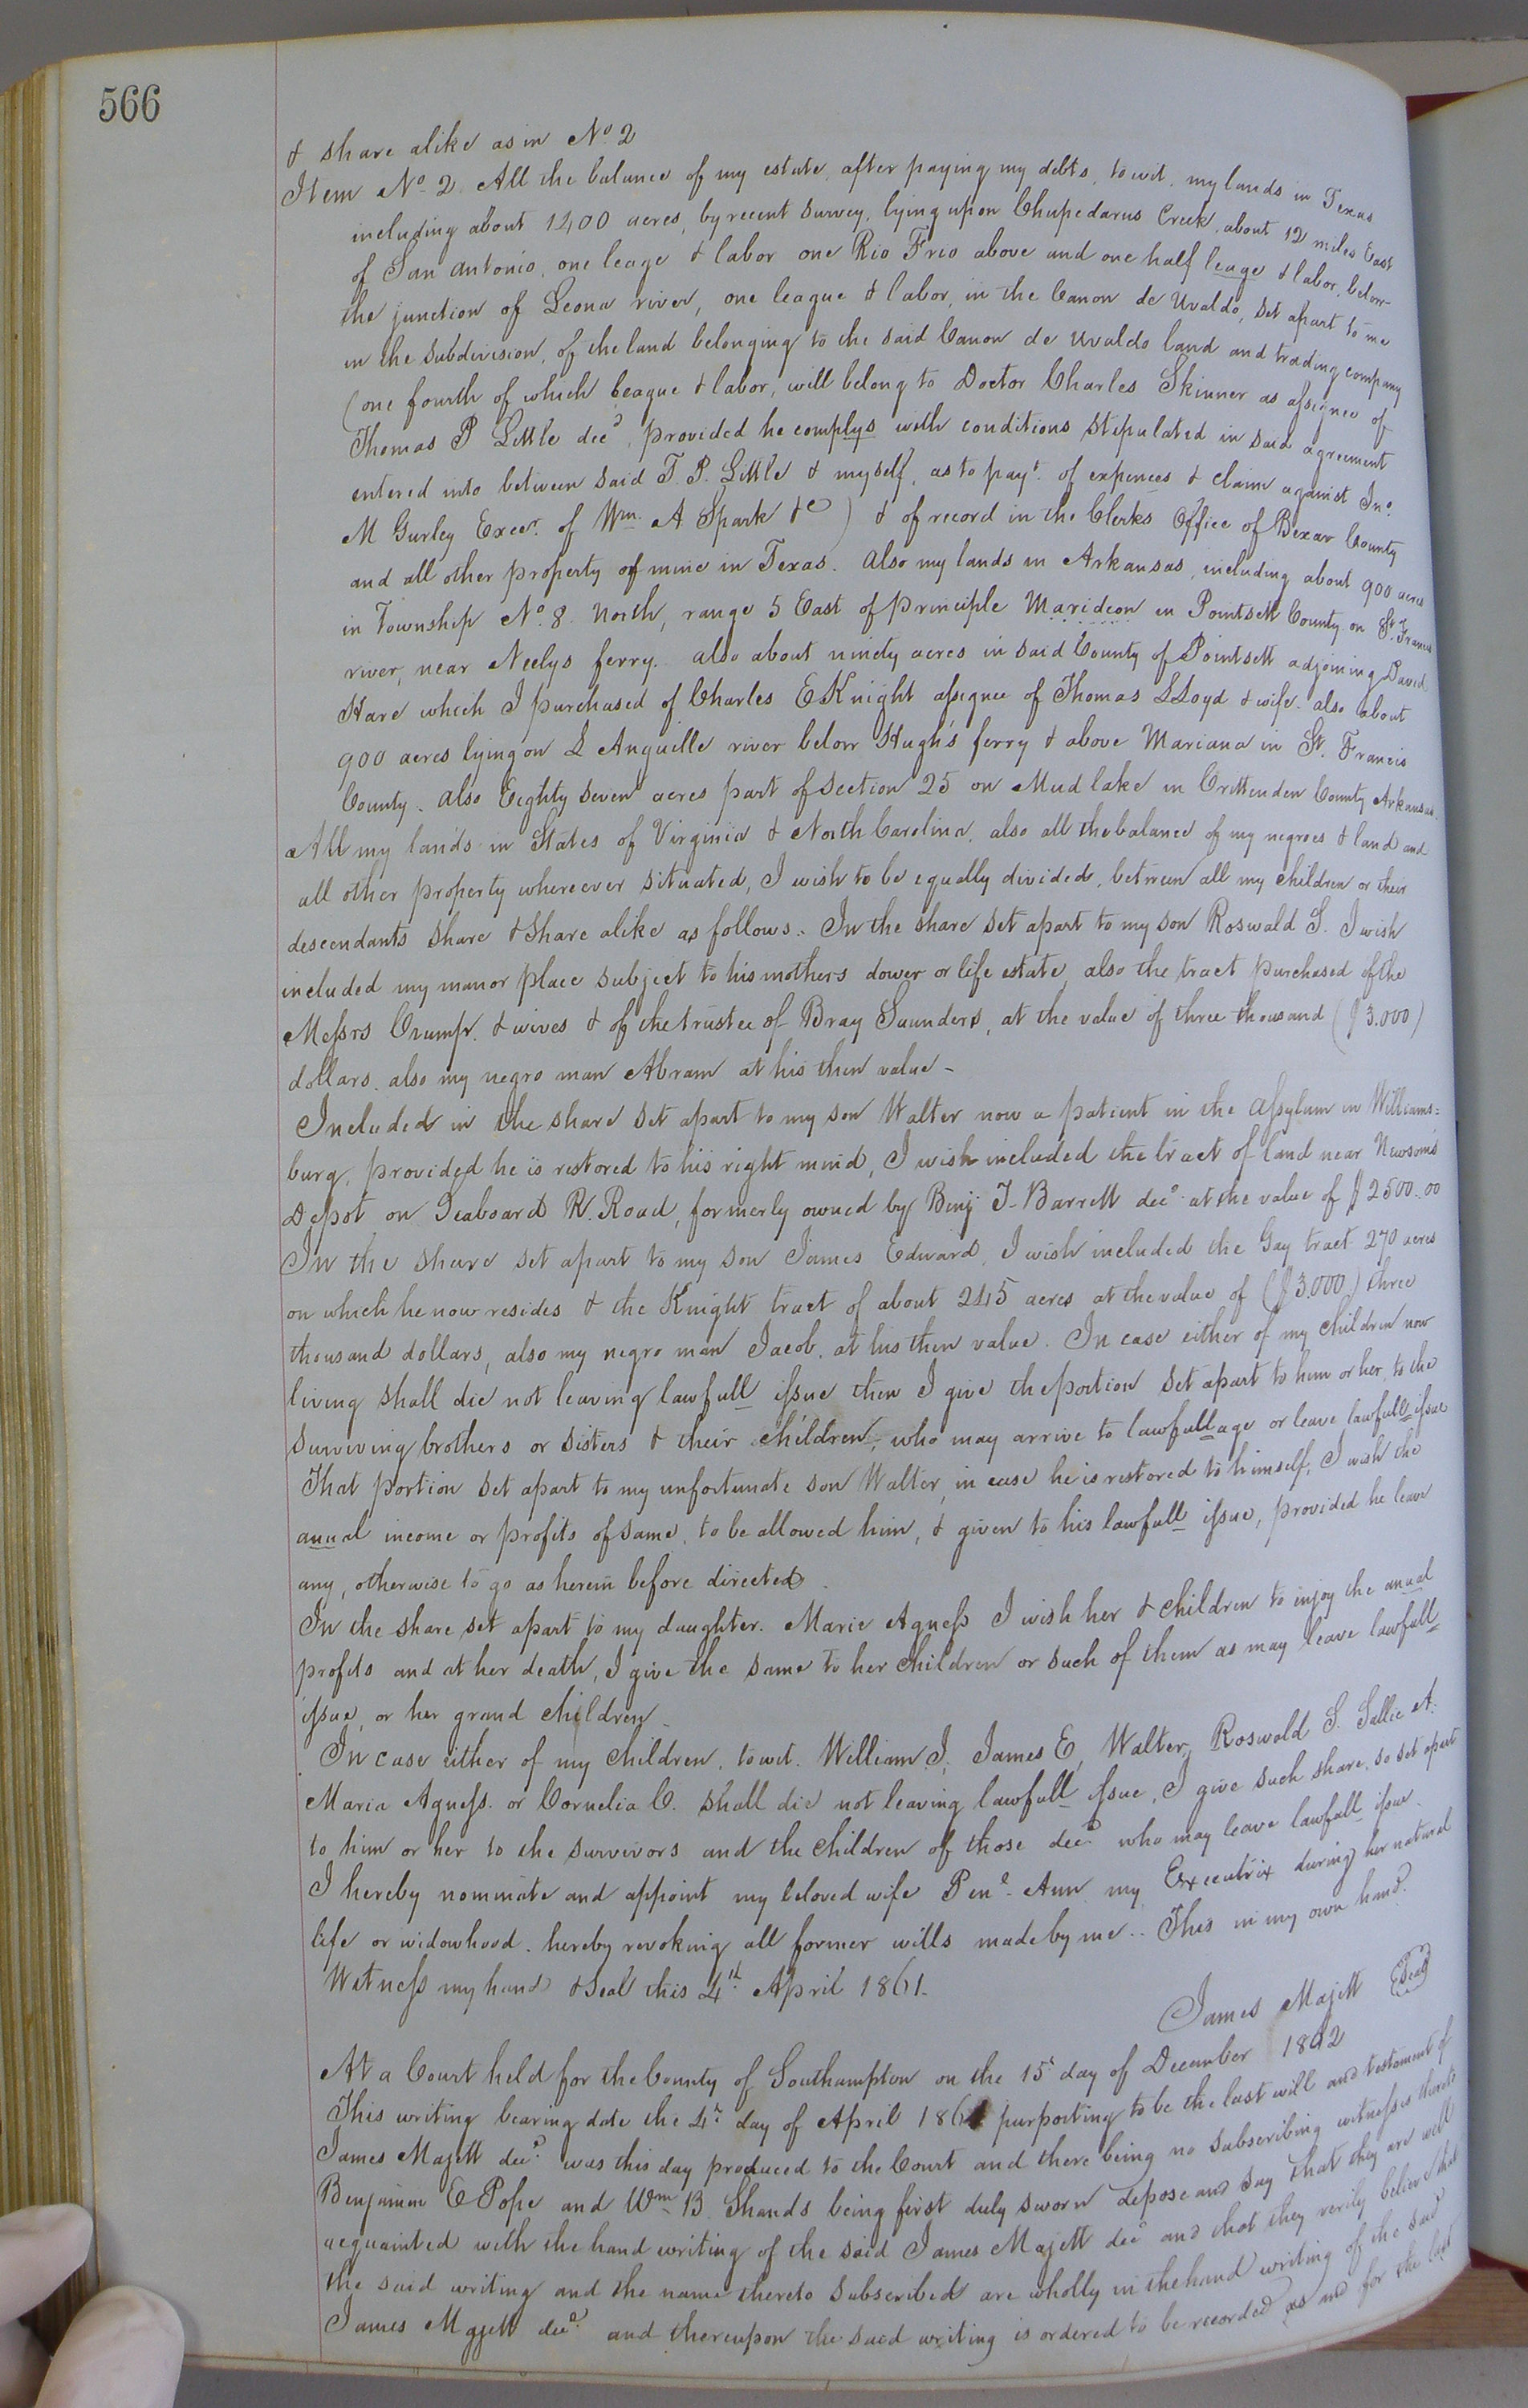 566
& share alike as in No. 2
Item No. 2. All the balance of my estate, after paying my debts, to wit, my lands in Texas
including about 1400 acres, by recent survey, lying upon Chupedarus Creek, about 12 miles East
of San Antonio, one leage & labor one Rio Frio above and one half leage & labor, below
the junction of Leona river, one league & labor, in the Canon de Uvaldo, set apart to me
in the subdivision, of the land belonging to the said Canon de Uvaldo land and trading company
(one fourth of which league & labor, will belong to Doctor Charles Skinner as assignee of
Thomas P Little decd, provided he complys with conditions stipulated in said agreement
entered into between said T. P. Little & myself, as to payt. of expences & claim against Jno.
M Gurley Execr. of Wm. A Spark &c) & of record in the Clerks Office of Bexar County
and all other property of mine in Texas. also my lands in Arkansas, including about 900 acres
in Township No. 8. North, range 5 East of principle Marideon in Pointsett County on St. Francis
river, near Neelys ferry. also about ninety acres in said County of Pointsett adjoining David
Hare which I purchased of Charles E Knight assignee of Thomas LLoyd & wife. also about
900 acres lying on L Anguille river below Hugh's ferry & above Mariana in St. Francis
County. also Eighty seven acres part of section 25 on Mud lake in Crittenden County Arkansas.
All my lands in States of Virginia & North Carolina, also all the balance of my negroes & land and
all other property whereever situated, I wish to be equally divided, between all my children or their
descendants share & share alike as follows. In the share set apart to my son Roswald S. I wish
included my manor place subject to his mothers dower or life estate, also the tract purchased of the
Messrs Crumpr. & wives & of the trustee of Bray Saunders, at the value of three thousand ($3.000)
dollars. also my negro man Abram at his then value -
Included in the share set apart to my son Walter now a patient in the assylum in Williams=
burg, provided he is restored to his right mind, I wish included the tract of land near Newsoms
Depot on Seaboard R. Road, formerly owned by Benj T. Barrett decd. at the value of $2500.00
In the share set apart to my son James Edward, I wish included the Gay tract 270 acres
on which he now resides & the Knight tract of about 245 acres at the value of ($3.000) three
thousand dollars, also my negro man Jacob, at his then value. In case either of my children now
living shall die not leaving lawfull issue then I give the portion set apart to him or her, to the
surviving brothers or sisters & their children, who may arrive to lawfull age or leave lawfull issue
That portion set apart to my unfortunate son Walter, in case he is restored to himself, I wish the
anual income or profits of same, to be allowed him, & given to his lawfull issue, provided he leave
any, otherwise to go as herein before directed.
In the share set apart to my daughter. Marie Agness I wish her & children to injoy the anual
profits and at her death, I give the same to her children or such of them as may leave lawfull
issue, or her grand children -
In case either of my children, to wit. William J, James E, Walter, Roswald S. Sallie A.
Maria Agness. or Cornelia C. shall die not leaving lawfull issue, I give such share, so set apart
to him or her to the survivors and the children of those decd who may leave lawfull issue.
I hereby nominate and appoint my beloved wife Pene. Ann my Executrix during her natural
life or widowhood. hereby revoking all former wills made by me.. This in my own hand.
Witness my hand & seal this 4th April 1861.
James Majett (Seal)
At a Court held for the County of Southampton on the 15 day of December 1862
This writing bearing date the 4th day of April 1861 purporting to be the last will and testament of
James Majett decd. was this day produced to the Court and there being no subscribing witnesses thereto
Benjamin E Pope and Wm B. Shands being first duly sworn depose and say that they are well
acquainted with the hand writing of the said James Majett decd and that they verily believe that
the said writing and the name thereto subscribed are wholly in the hand writing of the said
James Majett decd. and thereupon the said writing is ordered to be recorded as and for the last